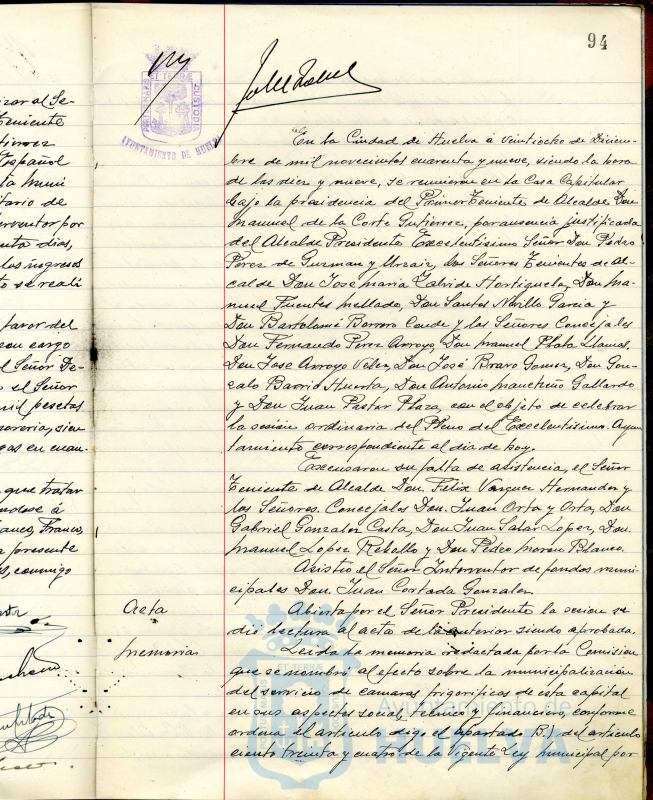 94
AYUNTAMIENTO DE HUELVA
En la Ciudad de Huelva á veintiocho de Diciem-
bre de mil novecientos cuarenta y nueve, siendo la hora
de las diez y nueve, se reunieron en la Casa Capitular
bajo la presidencia del Primer Teniente de Alcalde Don
Manuel de la Corte Gutierrez, por ausencia justificada
del Alcalde Presidente Excelentisimo Señor Don Pedro
Perez de Guzman y Urzaiz, los Señores Tenientes de Al-
calde Don Jose Maria Zalvide Hortiguela, Don Ma-
nuel Fuentes Mellado, Don Santos Novillo Garcia y
Don Bartolomé Borrero Conde y los Señores Concejales
Don Fernando Perez Arroyo, Don Manuel Plata Llamas,
Don Jose Arroyo Velez, Don José Bravo Gomez, Don Gon-
zalo Barrid Huerta, Don Antonio Mancheño Gallardo
y Don Juan Pastor Plaza, con el objeto de celebrar
la sesion ordinaria del Pleno del Excelentisimo Ayun
tamiento correspondiente al dia de hoy.
Excusaron su falta de asistencia, el Señor
Teniente de Alcalde Don Félix Vazquez Hernandez y
los Señores Concejales Don Juan Orta y Orta, Don
Gabriel Gonzalez Costa, Don Juan Salas Lopez, Don
Manuel Lopez Rebollo y Don Pedro Moron Blanco.
Asistio el Señor Interventor de fondos muni-
cipales Don Juan Cortada Gonzalez.
Acta
Abierta por el Señor Presidente la sesion se
dió lectura al acta de la anterior siendo aprobada.
Memorias
Leida la memoria redactada por la Comision
que se nombró al efecto sobre la municipalización
del servicio de camaras frigorificas de esta capital
en su aspectos social, tecnico y financiero, conforme
ordena el articulo digo el apartado B) del articulo
ciento treinta y cuatro de la vigente Ley municipal por
Ayuntamiento de
HUELVA